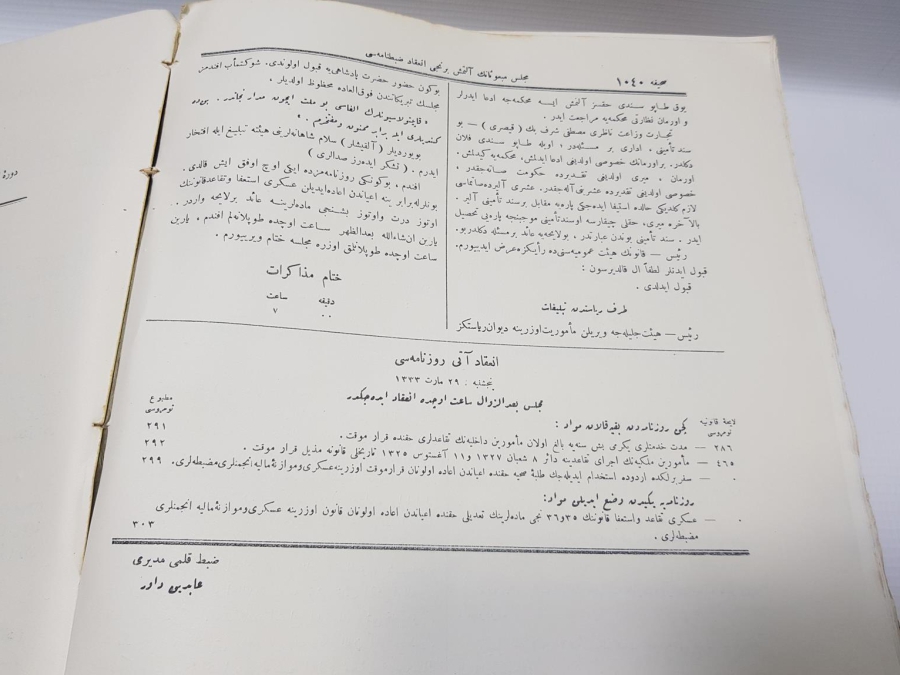 صحیفه ١٠٤٠
مجلس مبعوثانك آلتمش برنجی انعقاد ضبطنامه‌سی
یوق طاپو سندی حقسز آلنمش ایسه محكمه‌جه ادعا ایدرلر
و اورمان نظارتی محكمه‌یه مراجعت ایدر .
تجارت وزراعت ناظری مصطفی شرف بك ( قیصری ) — بو
سند تأمینی ، اداری بر مسئله‌در ، اویله طاپو سندی فلان
دكلدر. براورمانك خصوصی اولدیغی ادعا ایدلمش، محكمه‌یه كیدلمش.
اورمان ، میری اولدیغی تقدیرده حكومت صاته‌جقدر ،
خصوصی اولدیغی تقدیرده عشرینی آله‌جقدر. عشری آلیرده‌صاتماسی
لازم كلدیكی حالده استیفا ایده‌جكی پاره‌یه مقابل برسند تأمینی آلیر .
بالآخره میری، حقلی چیقارسه اوسندتأمینی موجبنجه پاره‌یی تحصیل
ایدر . سند تأمینی بوندن عبارتدر ، بولایحه‌یه عائد برمسئله دكلدربو.
رئیس — قانونك هیئت عمومیه‌سنی‌ده رأیكزه‌عرض ایدییورم.
قبول ایدنلر لطفاً ال قالدیرسون :
قبول ایدلدی .
طرف ریاستدن تبلیغات
رئیس — هیئت‌جلیله‌جه ویریلن مأموریت‌اوزرینه دیوان‌ریاستكز
بوكون حضور حضرت پادشاهی‌یه قبول اولوندی، شوكتمآب افندمز
مجلسك تبریكاتندن فوق‌العاده محظوظ اولدیلر .
« قاپیتولاسیونلرك الغاسی بو ملت ایچون مدار نجاتدر . بن‌ده
كندیلری ایله برابر ممنون ومفتخرم . »
بویوردیلر ( آلقیشلر ) سلام شاهانه‌لرینی هیئته تبلیغ ایله افتخار
ایدرم . ( تشكر ایده‌رز صدالری )
افندم ، بوكونكی روزنامه‌مزده ایكی اوچ اوفق ایش قالدی .
بونلرله‌برابر ینه اعیاندن اعاده‌ایدیلن عسكری استعفا وتقاعدقانوننك
اوتوز درت واوتوز بشنجی ماده‌لرینه عائد برلایحه واردر .
یارین ان‌شاءالله بعدالظهر ساعت اوچده طوپلانه‌لم افندم ، یارین
ساعت اوچده طوپلانمق اوزره مجلسه ختام ویرییورم .
ختام مذاكرات
دقیقه ساعت
٠٠ ٧
انعقاد آتی روزنامه‌سی
پنجشنبه : ٢٩ مارت ١٣٣٣
مجلس بعدالزوال ساعت اوچده انعقاد ایده‌جكدر
لایحهٔ قانونیه نومروسی
مطبوع نومروسی
یكی روزنامه‌دن بقیه‌قالان مواد :
٢٨٦ — مدت خدمتلری یكرمی بش سنه‌یه بالغ اولان مأمورین داخلیه‌نك تقاعدلری حقنده قرار موقت . ٢٩١
٤٦٥ — مأمورین ملكیه‌نك اجرای تقاعدینه دائر ٨ شعبان ١٣٢٧ و ١١ آغستوس ١٣٢٥ تاریخلی قانونه مذیل قرار موقت . ٢٩٢
٠ — سفربرلكده اردوده استخدام ایدیله‌جك طلبهٔ صحیه حقنده اعیاندن اعاده اولونان قرارموقت اوزرینه‌عسكری‌وموازنهٔ مالیه‌انجمنلری‌مضبطه‌لری. ٢٩٩
روزنامه‌یه یكیدن وضع ایدیلن مواد :
٠ — عسكری تقاعد واستعفا قانوننك ٣٥و٣٦ نجی ماده‌لرینك تعدیلی حقنده اعیاندن اعاده اولونان قانون اوزرینه عسكری‌وموازنهٔ مالیه انجمنلری
مضبطه‌لری . ٣٠٣
ضبط قلمی مدیری
عابدین داور